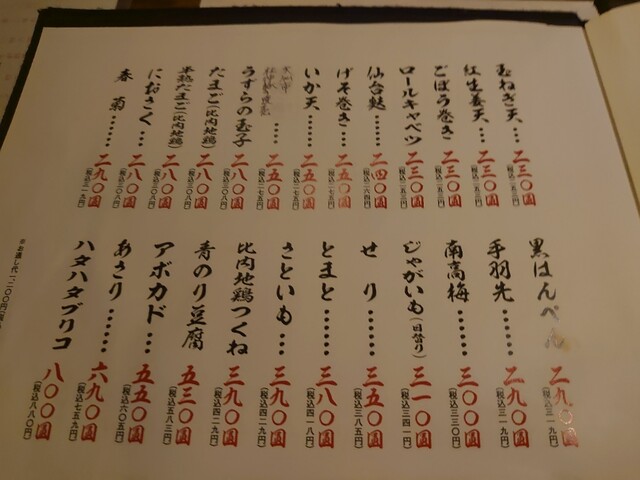 玉ねぎ天・・・ 二三〇圓 (税込二五三円)
紅生姜天・・・ 二三〇圓 (税込二五三円)
ごぼう巻き 二三〇圓 (税込二五三円)
ロールキャベツ 二三〇圓 (税込二五三円)
仙台麩・・・ 二四〇圓 (税込二六四円)
げそ巻き・・ 二五〇圓 (税込二七五円)
いか天・・・・・ 二五〇圓 (税込二七五円)
・・・・ 二五〇圓 (税込二七五円)
うずらの玉子 二八〇圓 (税込三〇八円)
たまご(比内地鶏) 二八〇圓 (税込三〇八円)
半熟たまご(比内地鶏) 二八〇圓 (税込三〇八円)
におさく・・ 二八〇圓 (税込三〇八円)
春菊・・・・・ 二九〇圓 (税込三一九円)
黒はんぺん 二九〇圓 (税込三一九円)
手羽先・・・・・ 二九〇圓 (税込三一九円)
南高梅・・・・・ 三〇〇圓 (税込三三〇円)
じゃがいも(日替り) 三一〇圓 (税込三四一円)
せり・・・・・ 三五〇圓 (税込三八五円)
とまと・・・・・ 三八〇圓 (税込四一八円)
さといも・・・ 三九〇圓 (税込四二九円)
比内地鶏つくね 三九〇圓 (税込四二九円)
青のり豆腐 五三〇圓 (税込五八三円)
アボカド・・・ 五五〇圓 (税込六〇五円)
あさり・・・・・ 六九〇圓 (税込七五九円)
ハタハタブリコ 八〇〇圓 (税込八八〇円)
※お通し代一、二〇〇円(税